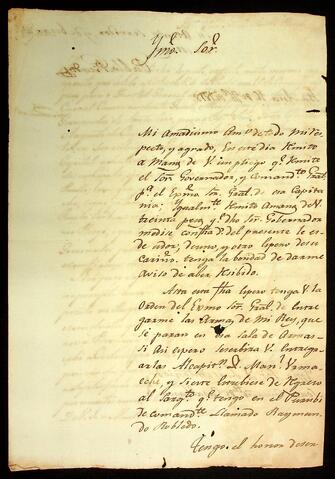 Ymo. Sor.
Mi Amadisimo Amo detodo mi res
pecto, y agrado, En este dia Remito
a Manos de V. un pliego qe. Remite
el Sor. Governador, y Comandte. Gral.
pa. el Exmo. Sor. Gral. de esa Capita
nia; Ygualmte. Remito Amanos de V.
treinta pesos qe. dho Sor. Governador
me dice con fha del presente le es
deudor; de uno, y otro Espero de su
Cariño tenga la bondad de darme
aviso de aber Resibido.
Asta esta fha Espero tenga V. la
Orden del Exmo. Sor. Gral. de entre
garme las Armas de Mi Rey, que
se paran en esa Sala de Armas
si Asi Espero se serbira V. Entregar
las Alcapn. D. Manl.
che, y si este Estubiese de Regreso
al Sargto. qe. tengo en el
de comandte. Llamado Raymun
do Robledo.
Tengo el honor de ser